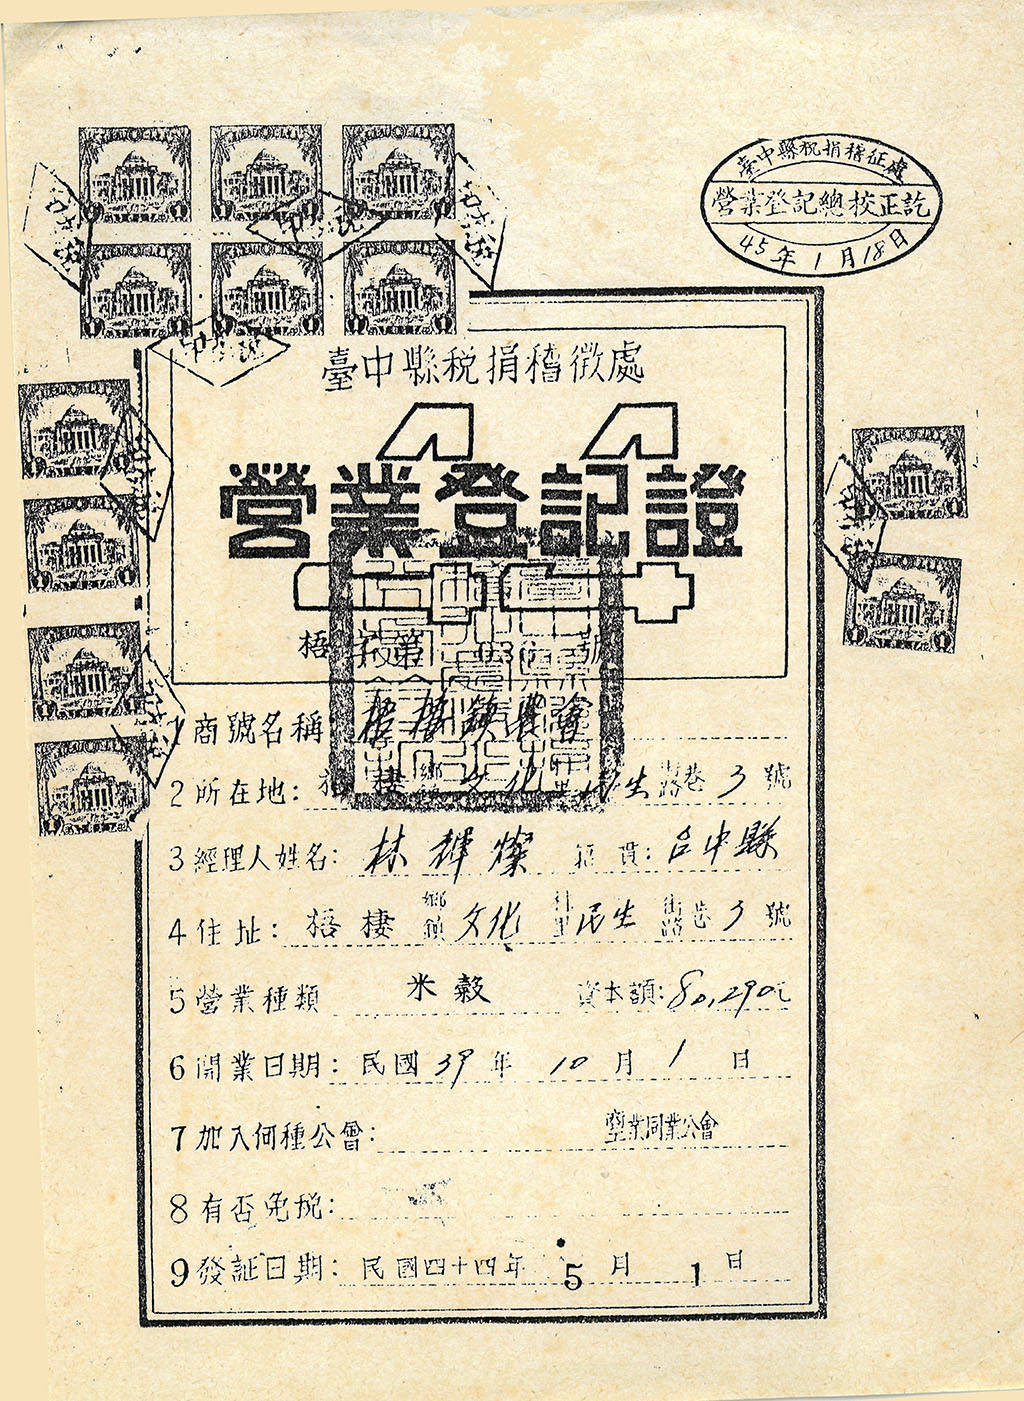 臺中縣稅捐稽征處
營業登記總校正訖
45年1月18日
臺中縣稅捐稽徵處
44
營業登記證
梧 第 號
1 商號名稱 梧棲鎮農會
2 所在地: 梧棲 鄉鎮 文化 村里 民生 街路巷 3 號
3 經理人姓名: 林輝燦 籍貫: 台中縣
4 住址: 梧棲 鄉鎮 文化 村里 民生 街路巷 3 號
5 營業種類 米穀 資本額: 80,290元
6 開業日期: 民國 39 年 10 月 1 日
7 加入何種公會: 業同業公會
8 有否免稅:
9 發証日期: 民國四十四年 5 月 1 日